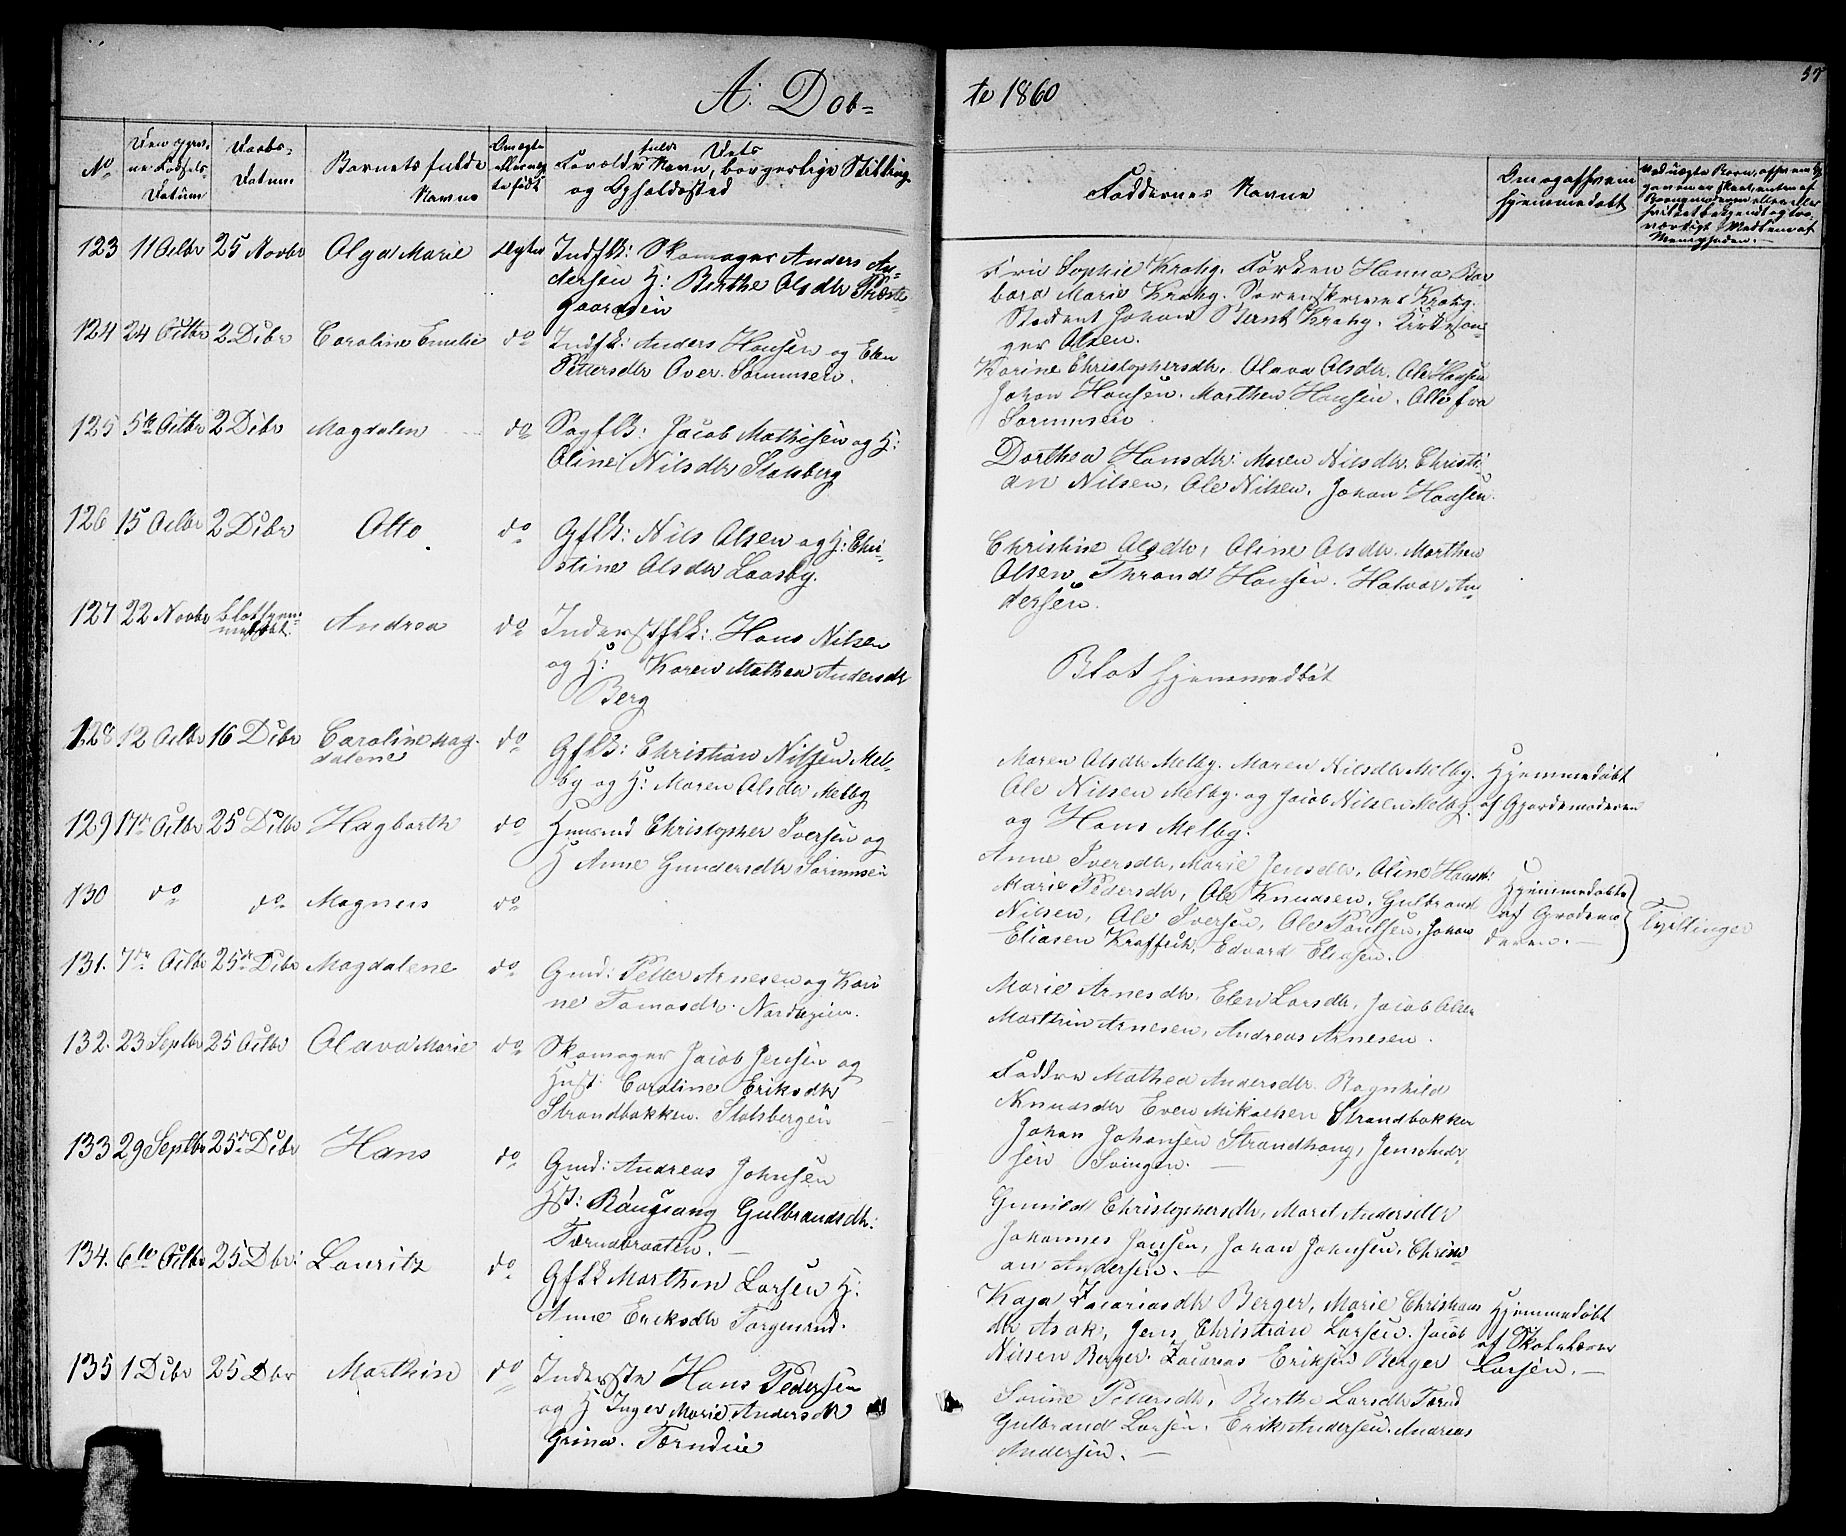 A: Døb=
te 1860
37
No
Den opgivne Fødsels Datum
Daabs-Datum
Barnets fulde Navne
Om ægte eller uægte født
Forældres fulde Navn, Dets borgerlige Stilling
og Opholdssted
Faddernes Navne
Om og af hvem hjemmedøbt
123 11 Octbr 25 Novbr Olga Marie Ægte
Indflk: Skomager Anders An-
dersen H: Berthe Olsdtr Præste
gaardseie
Frue Sophie Krohg. Frøken Hanna Bar-
bara Marie Krohg. Sorenskriver Krohg.
Student Johan Bernt Krohg. Kirkesan-
ger Olsen.
124 24 Octbr 2 Dcbr Caroline Emilie do
Indflk: Anders Hansen og Elen
Pettersdtr Over Sørumseie.
Karine Christophersdtr. Olava Olsdtr. Ole Hansen
Johan Hansen. Marthen Hansen. Alle fra
Sørumseie
125 5te Octbr 2 Dcbr Magdalen do
Sagflk: Jacob Mathisen og H:
Oline Nilsdtr Stalsberg
Dorthea Hansdtr: Maren Nilsdtr. Christi-
an Nilsen, Ole Nilsen, Johan Hansen.
126 15 Octbr 2 Dcbr Otto. do
Gflk: Nils Olsen og H: Chri-
stine Olsdtr Laasby.
Christine Olsdtr, Oline Olsdtr. Marthen
Olsen Thrond Hansen. Halvor An-
dersen.
127 22 Novbr Blot hjem-
medøbt. Andrea do
Inderstflk: Hans Nilsen
og H: Karen Mathea Andersdtr
Berg
Blot hjemmedøbt
128 12 Octbr 16 Dcbr Caroline Mag-
dalene do
Gflk: Christian Nilsen Mel-
by og H: Maren Olsdtr Melby
Maren Olsdtr Melby. Maren Nilsdtr Melby.
Ole Nilsen Melby. og Jacob Nilsen Melby.
og Hans Melby.
Hjemmedøbt
af Gjordemoderen
129 17de Octbr 25 Dcbr Hagbarth do
Huusmd Christopher Iversen og
H Anne Gundersdtr Sørumseie
130 do do Magnus do
Anne Iversdtr, Marie Jensdtr, Oline Hansdtr
Marie Pedersdtr, Ole Knudsen, Gulbrand
Nilsen, Ole Iversen, Ole Paulsen, Johan
Eliasen Kraffuk, Edvard Eliasen.
Hjemmedøbte
af Gjordemo
deren. —
Tvillinger
131. 7de Octbr 25de Dcbr Magdalene do
Gmd: Petter Arnesen og Kari
ne Tomasdtr. Nordbyeie.
Marie Arnesdtr, Elen Larsdtr, Jacob Olsen
Marthin Arnesen, Andreas Arnesen.
132. 23 Septbr 25 Octbr Olava Marie do
Skomager Jacob Jensen og
Hust: Caroline Eriksdtr
Strandbakken. Stalsbergeie
Faddre Mathea Andersdtr. Ragnhild
Knudsdtr Even Mikaelsen Strandbakken
Johan Johansen Strandhaug, Jens Andr-
sen Svingen. —
133 29 Septbr 25de Dcbr Hans do
Gmd: Andreas Johnsen
Hst: Gulbrandsdtr:
Tærnabraaten. —
Gunild Christophersdtr, Marit Andersdtr
Johannes Jansen, Johan Johnsen, Christi-
an Andersen. —
134. 6te Octbr 25 Dbr: Lauritz do
Gflk Marthen Larsen H:
Anne Eriksdtr Torgenrud.
Kaja Zacariasdtr Berger, Marie Christians
dtr Asak, Jens Christian Larsen. Jacob
Nilsen Berger. Zacarias Eriksen Berger
Hjemmedøbt
af Skolelærer
Larsen. —
135 1 Dcbr 25 Dbr Marthin do
Inderste Hans Pedersen
og H Inger Marie Andersdtr
Grina. Tærudeie
Sørine Petersdtr, Berthe Larsdtr Tærud
Gulbrand Larsen. Erik Andersen. Andreas
Andersen. —